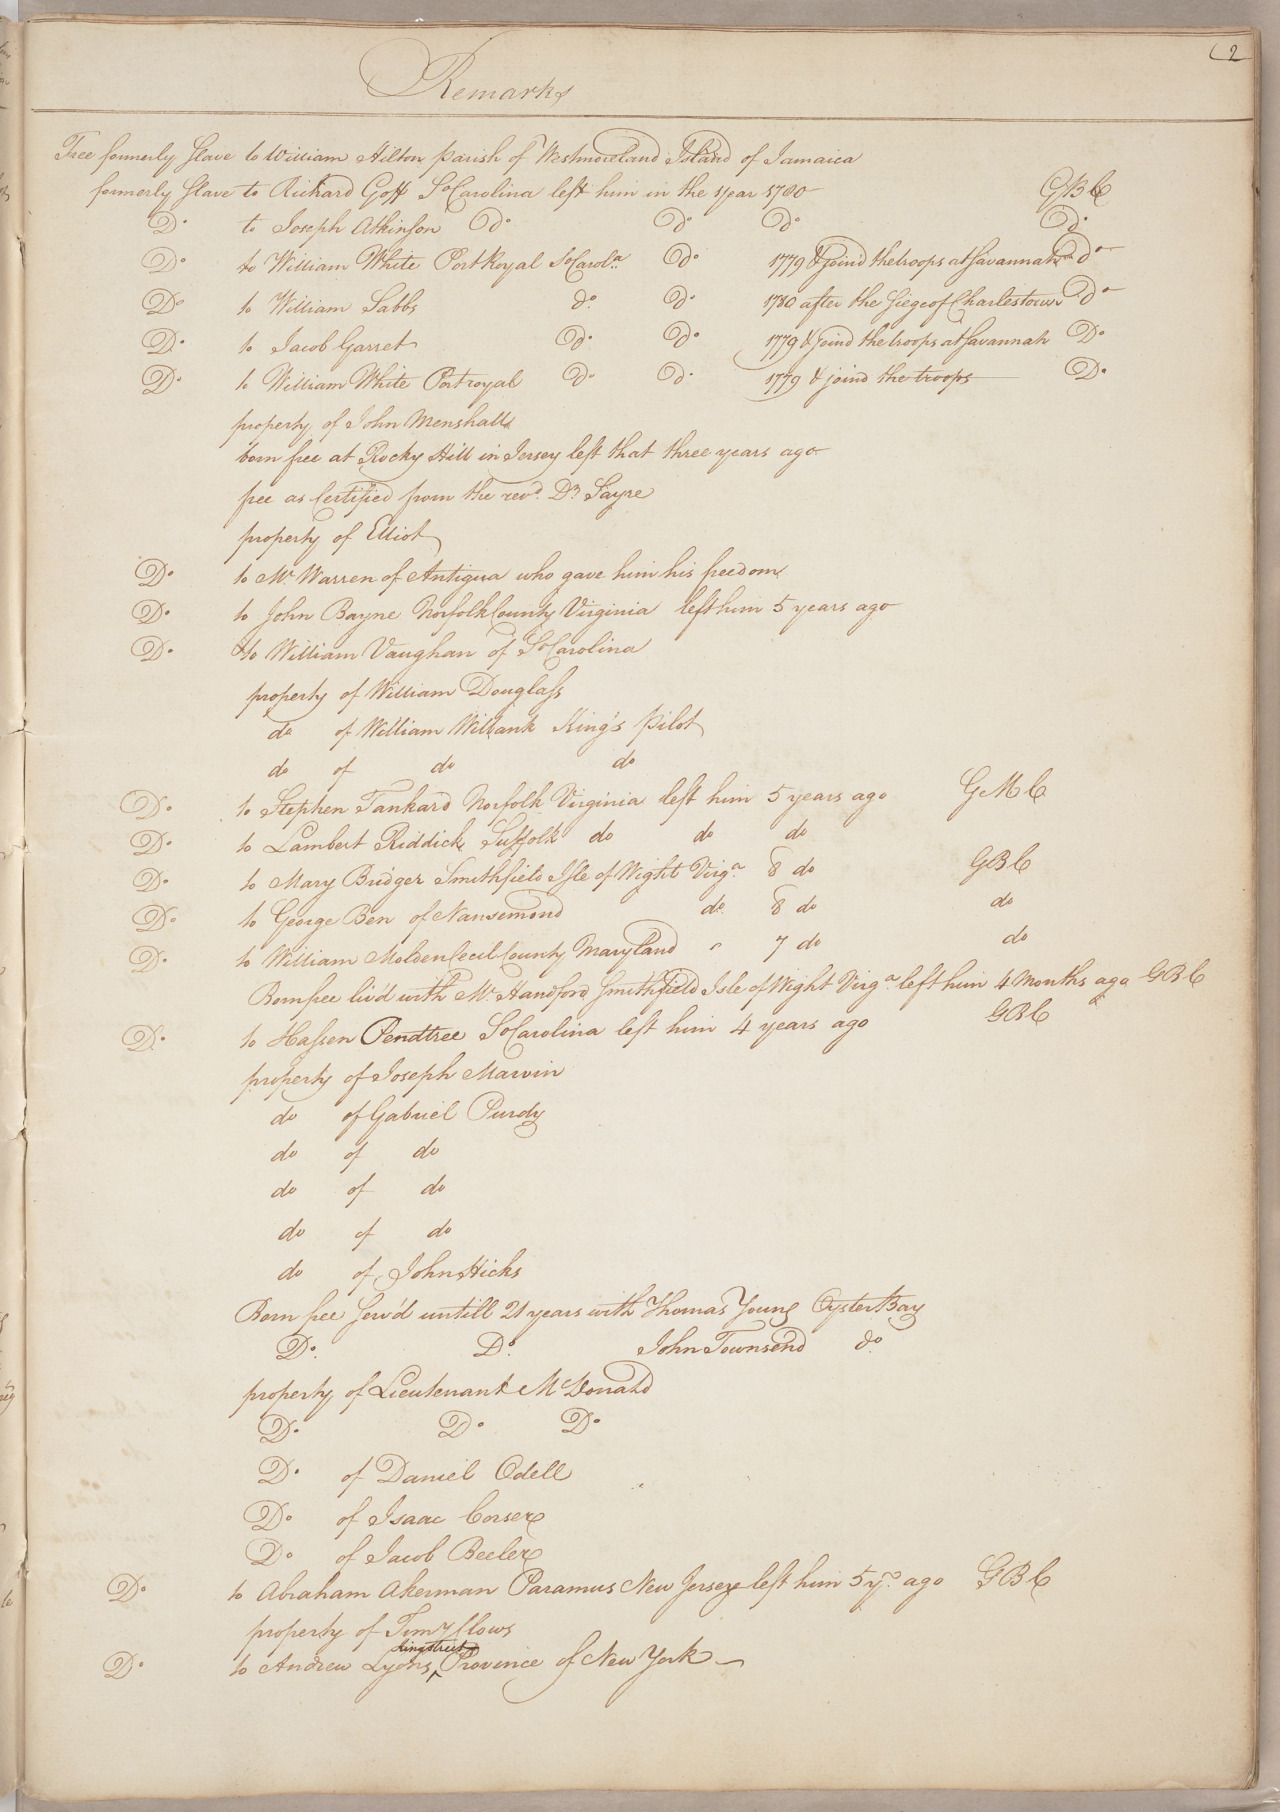 2
Remarks
Free formerly Slave to William Hilton parish of Westmoreland Island of Jamaica
formerly Slave to Richard Goff So Carolina left him in the year 1780 GBC
Do. to Joseph Atkinson Do. Do. Do. Do.
Do. to William White Port Royal So Carola. Do. 1779 & joind the troops at Savannah do
Do to William Sabbs do. Do. 1780 after the Siege of Charlestown do
Do. to Jacob Garret Do. Do. 1779 & joind the troops at Savannah Do.
Do. to William White Portroyal Do. Do. 1779 & joind the troops Do.
property of John Menshall
born free at Rocky Hill in Jersey left that three years ago
free as Certified from the revd. Dr. Sayre
property of Elliot
Do. to Mr. Warren of Antigua who gave him his freedom
Do. to John Bayne Norfolk County Virginia left him 5 years ago
Do. to William Vaughan of So Carolina
property of William Douglass
do of William Wilbank King's Pilot
do of do do
Do. to Stephen Tankard Norfolk Virginia left him 5 years ago GMC
Do. to Lambert Riddick Suffolk do do do
Do. to Mary Bridger Smithfield Isle of Wight Virga. 8 do GBC
Do. to George Ben of Nansemond do. 8 do do
Do. to William Molden Cecil County Maryland 7 do do
Born free liv'd with Mr. Handford Smithfield Isle of Wight Virga. left him 4 Months ago GBC
Do. to Hassen Pendtree So Carolina left him 4 years ago GBC
property of Joseph Marvin
do of Gabriel Purdy
do of do
do of do
do of do
do of John Hicks
Born free Serv'd untill 21 years with Thomas Young Oyster Bay
Do. Do. John Townsend do.
property of Lieutenant McDonald
Do. Do. Do.
Do. of Daniel Odell
Do. of Isaac Corser
Do. of Jacob Beeler
Do. to Abraham Akerman Paramus New Jersey left him 5 ys. ago GBC
property of
kingstreet
Do. to Andrew Lyons, ^ Province of New York